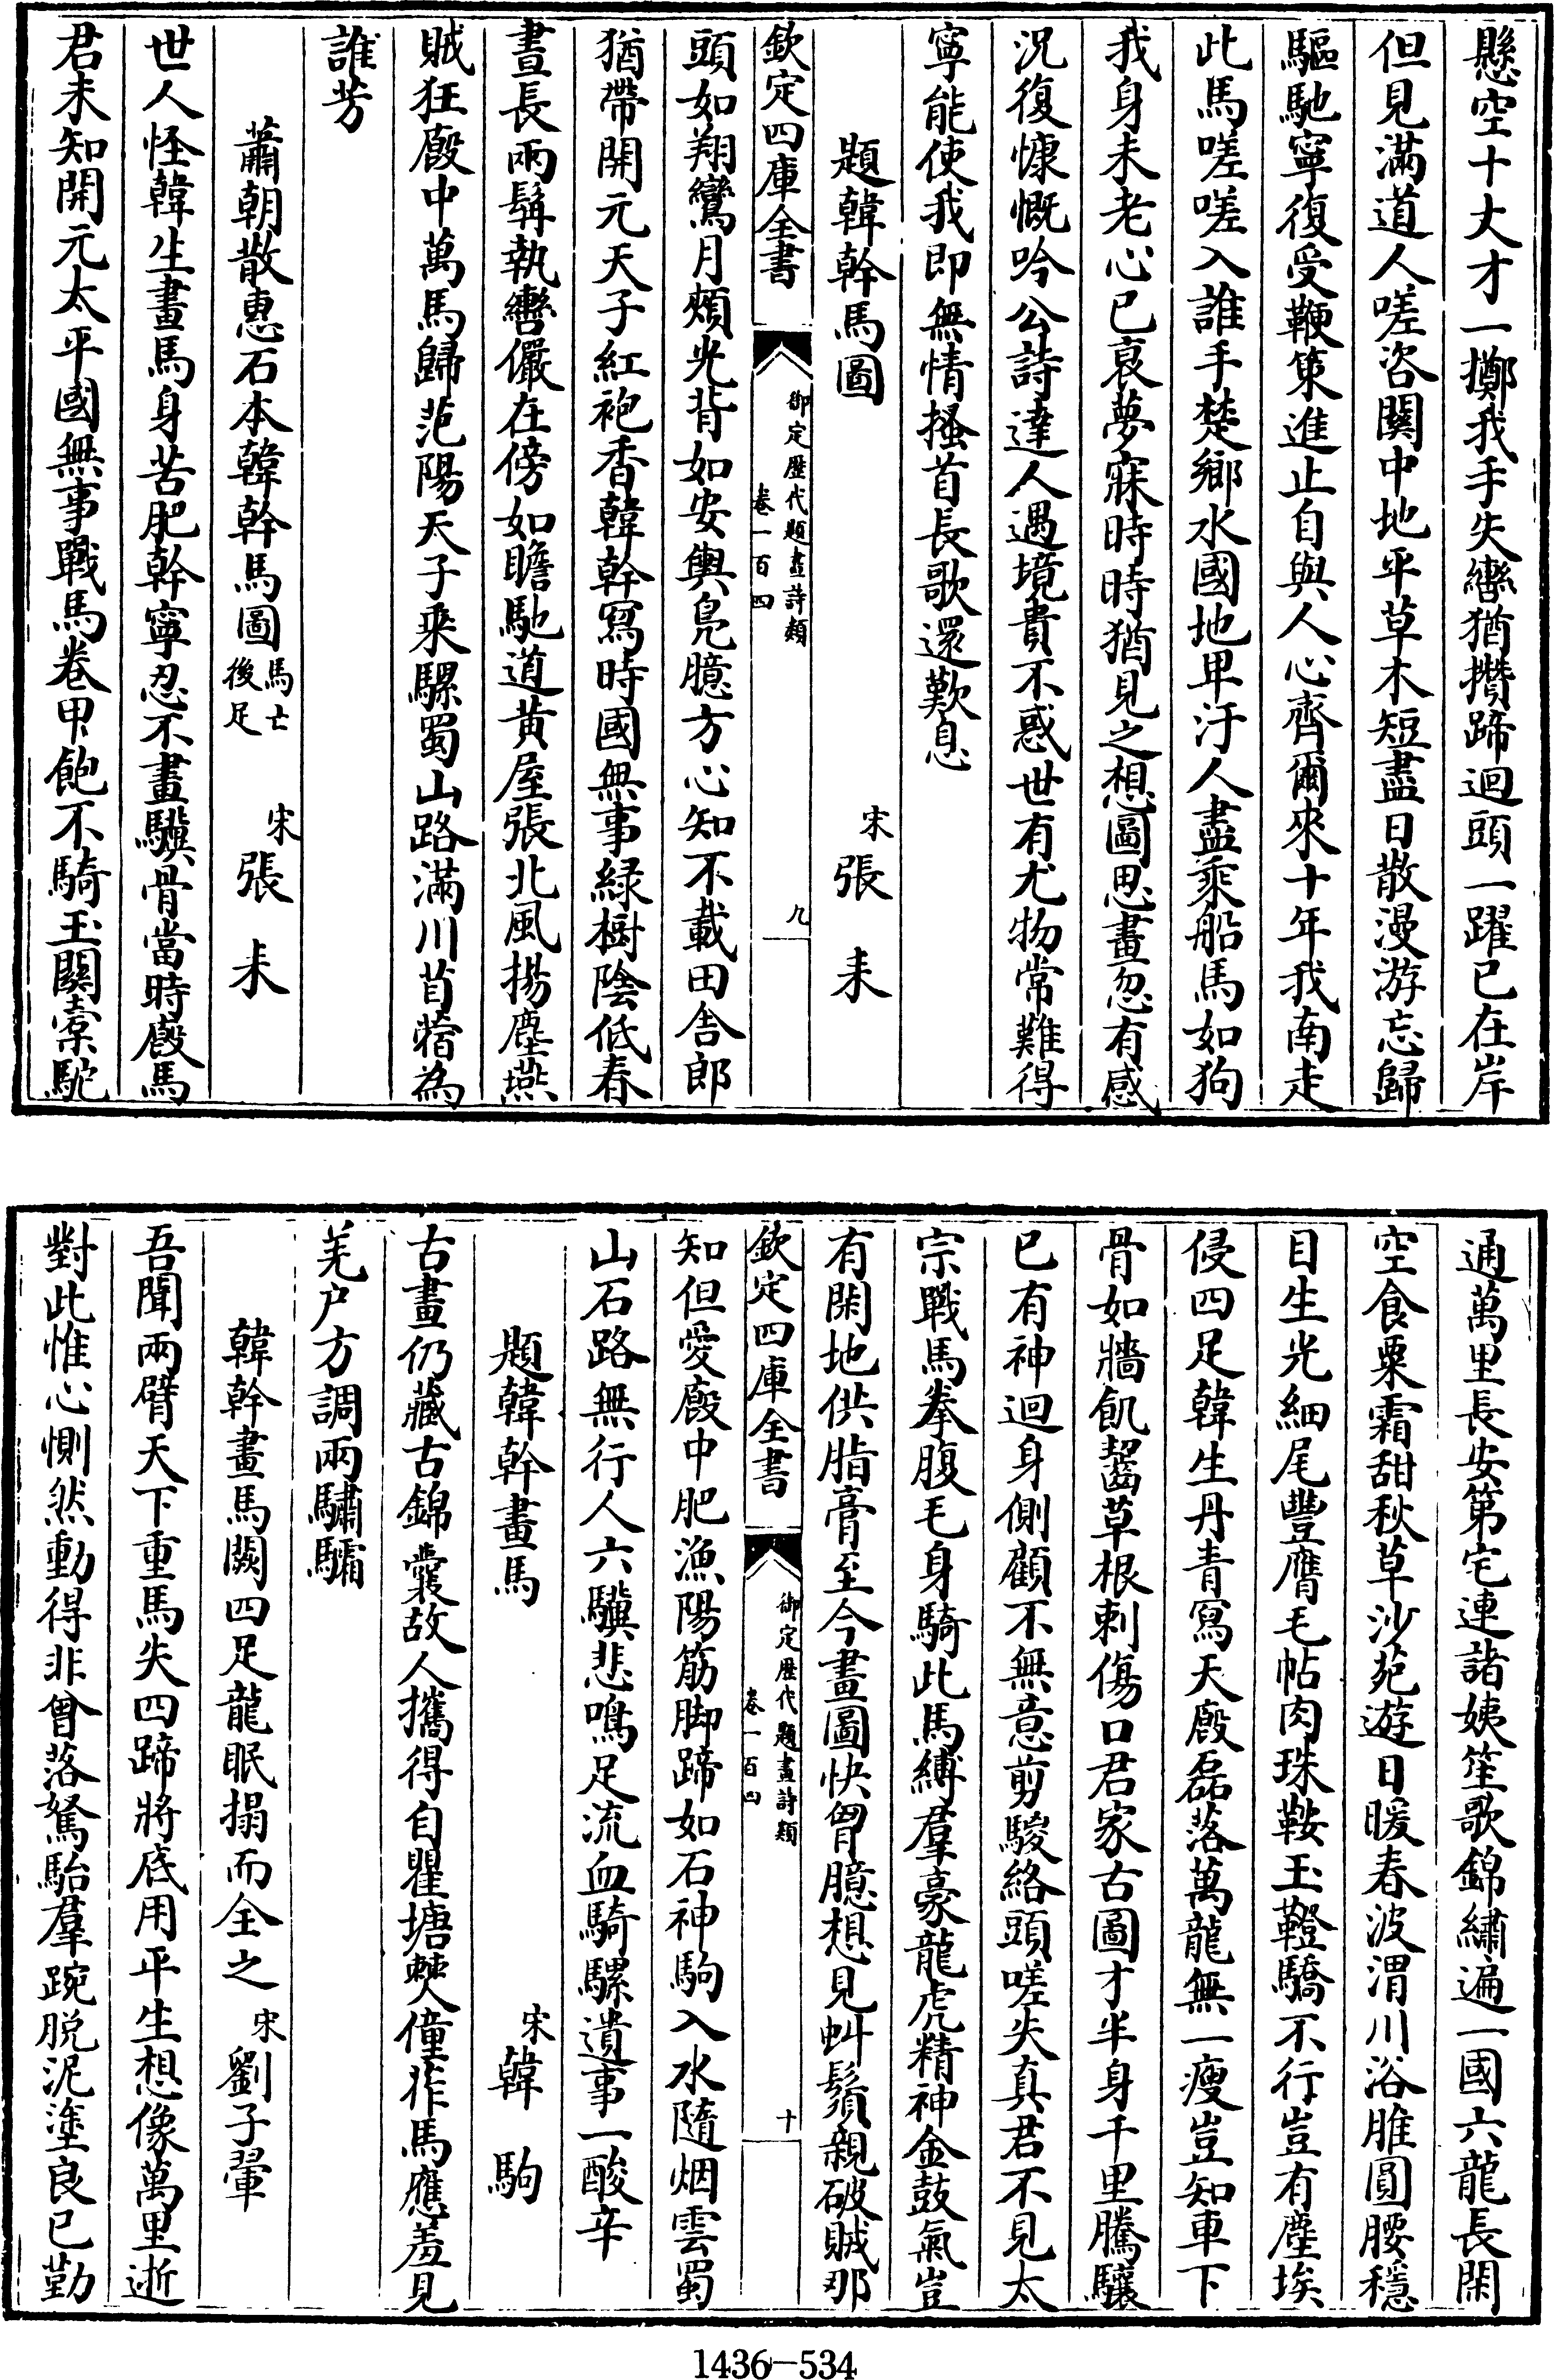 懸空十丈才一擲我手失轡猶攢蹄迴頭一躍已在岸
但見滿道人嗟咨闗中地平草木短盡日散漫游忘歸
驅馳寧復受鞭策進止自與人心齊爾來十年我南走
此馬嗟嗟入誰手楚鄉水國地卑汙人盡乘船馬如狗
我身未老心已衰夢寐時時猶見之想圖思畫忽有感
況復慷慨吟公詩達人遇境貴不惑世有尤物常難得
寧能使我即無情搔首長歌還歎息
題韓幹馬圖 宋張耒
欽定四庫全書 御定歴代題畫詩類 卷一百四 九
頭如翔鸞月頰光背如安輿鳬臆方心知不載田舍郎
猶帶開元天子紅袍香韓幹寫時國無事緑樹陰低春
晝長兩髯執轡儼在傍如瞻馳道黄屋張北風揚塵燕
賊狂廄中萬馬歸范陽天子乘騾蜀山路滿川苜蓿為
誰芳
蕭朝散惠石本韓幹馬圖馬亡後足 宋張耒
世人怪韓生畫馬身苦肥幹寧忍不畫驥骨當時廄馬
君未知開元太平國無事戰馬卷甲飽不騎玉闗槖駝
通萬里長安第宅連諸姨笙歌錦繡遍一國六龍長閑
空食粟霜甜秋草沙苑遊日暖春波渭川浴脽圓腰穩
目生光細尾豐膺毛帖肉珠鞍玉鐙驕不行豈有塵埃
侵四足韓生丹青寫天廄磊落萬龍無一瘦豈知車下
骨如牆飢齧草根刺傷口君家古圖才半身千里騰驤
已有神迴身側顧不無意剪騣絡頭嗟失真君不見太
宗戰馬拳腹毛身騎此馬縛羣豪龍虎精神金鼓氣豈
有閑地供脂膏至今畫圖快胷臆想見虯鬚親破賊那
欽定四庫全書 御定歴代題畫詩類 卷一百四 十
知但愛廄中肥漁陽筋脚蹄如石神駒入水隨烟雲蜀
山石路無行人六驥悲鳴足流血騎騾遺事一酸辛
題韓幹畫馬 宋韓駒
古畫仍藏古錦囊故人攜得自瞿塘僰僮作馬應羞見
羌户方調兩驌驦
韓幹畫馬闕四足龍眠搨而全之 宋劉子翬
吾聞兩臂天下重馬失四蹄將底用平生想像萬里逝
對此惟心惻然動得非曾落駑駘羣踠脱泥塗良已勤
1436-534